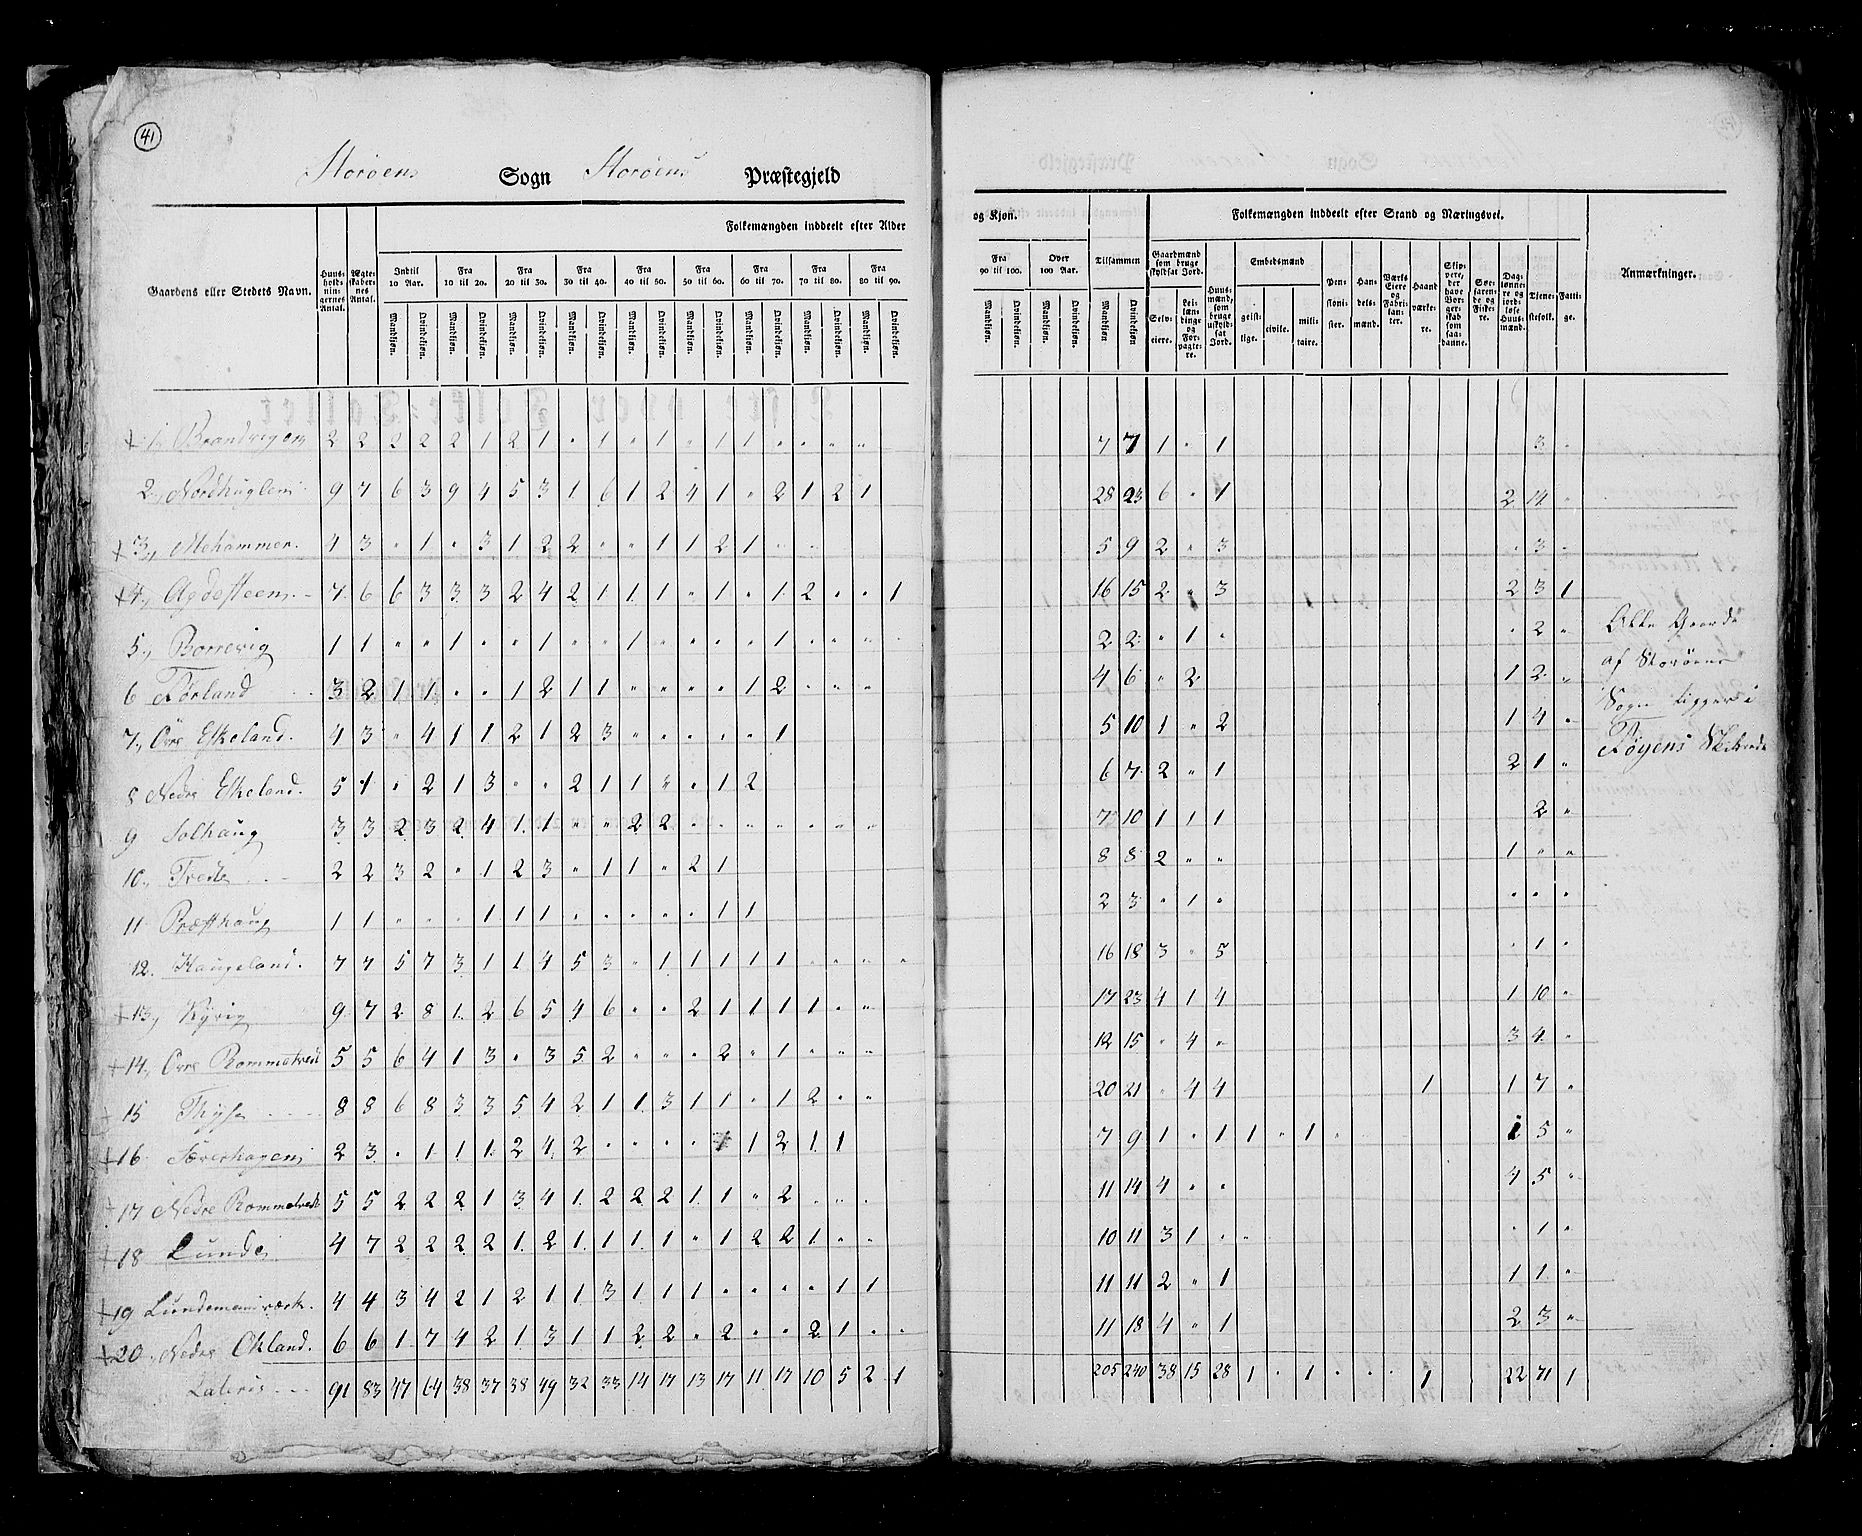 41
Storøens Sogn Storøens Præstegjeld
Gaardens eller Stedets Navn. Huusholdningernes Antal. Ægteskabernes Antal. Folkemængden inddeelt efter Alder
Indtil 10 Aar. Fra 10 til 20. Fra 20 til 30. Fra 30 til 40. Fra 40 til 50. Fra 50 til 60. Fra 60 til 70. Fra 70 til 80. Fra 80 til 90.
Mandkjøn. Qvindekjøn. Mandkjøn. Qvindekjøn. Mandkjøn. Qvindekjøn. Mandkjøn. Qvindekjøn. Mandkjøn. Qvindekjøn. Mandkjøn. Qvindekjøn. Mandkjøn. Qvindekjøn. Mandkjøn. Qvindekjøn. Mandkjøn. Qvindekjøn.
1, Brandvigen 2 2 2 2 2 1 2 1 " 1 " 1 " 1 1 " " " "
2, Nordhuglen 9 7 6 3 9 4 5 3 1 6 1 2 4 1 " 2 1 2 1
3, Mehammer. 4 3 " 1 " 3 1 2 2 " " 1 1 2 1 " "
4, Agdesteen 7 6 6 3 3 3 2 4 2 1 1 1 " 1 " 1 2 " " 1
5, Borrevig 1 1 " " 1 " " 1 " " 1 " " " " 1 " " "
6 Førland 3 2 1 1 " " 1 2 1 1 " " " " 1 2 " " "
7, Øvre Eskeland. 4 3 " 4 1 1 2 1 2 3 " " " " " 1
8 Nedre Eskeland. 5 1 " 2 1 3 " " 2 1 1 " " 1 2
9 Solhaug 3 3 2 3 2 4 1 1 " " 2 2 " " " " " " "
10, Trede 2 2 3 2 " 1 2 3 " 1 1 " 2 1
11 Præsthaug 1 1 " " " 1 1 1 " " " " " 1 1
12. Haugeland. 7 7 5 7 3 1 1 4 5 3 " 1 1 1 1 1 " " " "
13, Kyvig 9 7 2 8 1 2 6 5 4 6 " " 2 1 1 1 1 " "
14, Øvre Rommetvedt 5 5 6 4 1 3 " 3 5 2 " " " 2 " 1 " " "
15 Thyse 8 8 6 8 3 3 5 4 2 1 1 3 1 1 " 1 2 " "
16 Sæverhagen 2 3 " 1 1 1 2 4 2 " " " " 1 1 2 1 1
17 Nedre Rommetvedt 5 5 2 2 2 1 3 4 1 2 2 2 1 1 " 2 " " "
18 Lunde 4 7 2 2 2 2 1 2 1 1 1 1 " 1 2 2 1 " "
19 Lundemanværk. 4 4 3 4 2 1 2 1 1 3 1 1 1 " " " " 1 1
20 Nedre Økland. 6 6 1 7 4 2 1 3 1 1 2 2 " 2 " " 2 1 " "
Lateris 91 83 47 64 38 37 38 49 32 33 14 17 13 17 11 17 10 5 2 1
og Kjøn. Folkemængden inddeelt efter Stand og Næringsvei. Anmærkninger.
Fra 90 til 100. Over 100 Aar. Tilsammen Gaardmænd som bruge skyldsat Jord. Huusmænd, som bruge uskyldsat Jord. Embedsmænd Pensionister. Handelsmænd. Værks Eiere og Fabrikanter. Haandværkere. Skippere, der have Borgerskab som saadanne. Søefarende og Fiskere. Daglønnere og jordløse Huusmænd. Tjenestefolk. Fattige.
Mandkjøn. Qvindekjøn. Mandkjøn. Qvindekjøn. Mandkjøn Qvindekjøn Selveiere. Leilændinge og Forpagtere. geistlige. civile. militaire.
7 7 1 " 1 3 "
28 23 6 " 1 2 14 "
5 9 2 " 3 " 3 "
16 15 2 " 3 2 3 1
2 2 " 1 " " 2 "
4 6 " 2 1 2 "
5 10 1 " 2 1 4 "
6 7 2 " 1 2 1 "
7 10 1 1 1 2 "
8 8 2 " " 1 " "
2 3 " 1 " " " "
16 18 3 " 5 " 1 "
17 23 4 1 4 1 10 "
12 15 " 4 " 3 4 "
20 21 " 4 4 1 1 7 "
7 9 1 " 1 1 " 1 " 1 5 "
11 14 4 " " 4 5 "
10 11 3 1 " " " 1 "
11 11 2 " 1 1 1 "
11 18 4 " 1 2 3 "
205 240 38 15 28 1 " 1 " " " 1 22 71 1
Alle Gaarde
af Storøens
Sogn ligger i
Føyens Skibrede